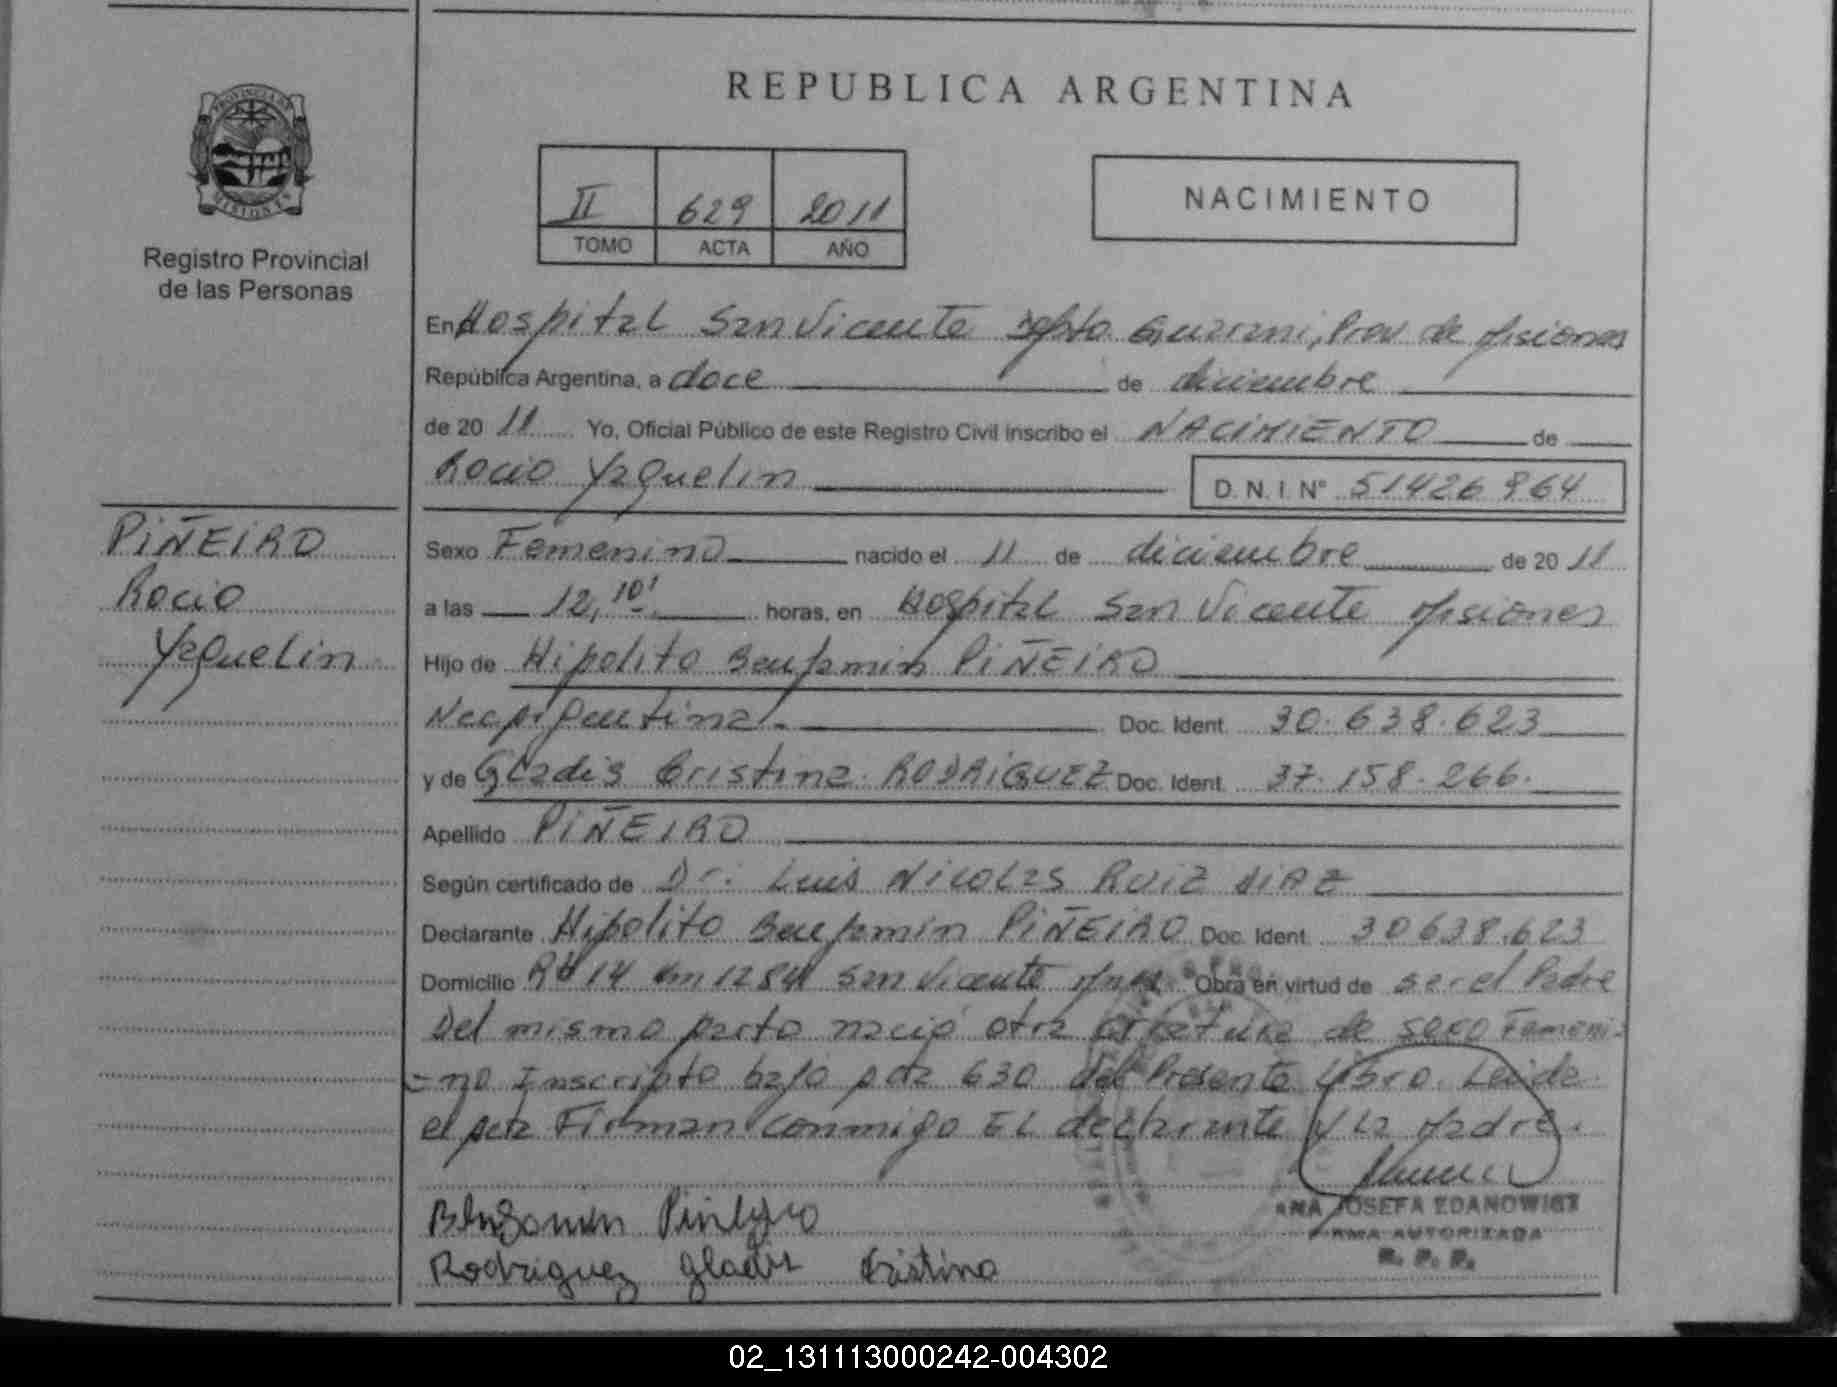 REPUBLICA ARGENTINA
PROVINCIA DE
MISIONES
Registro Provincial
de las Personas
II 629 2011
TOMO ACTA AÑO
NACIMIENTO
En Hospital San Vicente Depto Guarani, Prov de Misiones
República Argentina, a doce de diciembre
de 20 11 Yo, Oficial Público de este Registro Civil inscribo el NACIMIENTO de
Rocio Yaquelin D. N. I. N° 51426964
PIÑEIRO
Rocio
Yaquelin
Sexo Femenino nacido el 11 de diciembre de 20 11
a las 12,10' horas, en Hospital San Vicente Misiones
Hijo de Hipolito Benjamin PIÑEIRO
Nac Argentina Doc. Ident. 30.638.623
y de Gladis Cristina RODRIGUEZ Doc. Ident. 37.158.266.
Apellido PIÑEIRO
Según certificado de Dr. Luis Nicolas RUIZ DIAZ
Declarante Hipolito Benjamin PIÑEIRO Doc. Ident. 30638.623
Domicilio Rta 14 Km 1284 San Vicente Mnes Obra en virtud de ser el Padre
Del mismo parto nació otra criatura de sexo Femeni
-no Inscripto bajo acta 630 del Presente Libro. Leida
el acta Firman conmigo EL declarante y la Madre.
Benjamin Piñeyro
Rodriguez Gladis Cristina
ANA JOSEFA ZDANOWICZ
FIRMA AUTORIZADA
R. P. P.
02_131113000242-004302